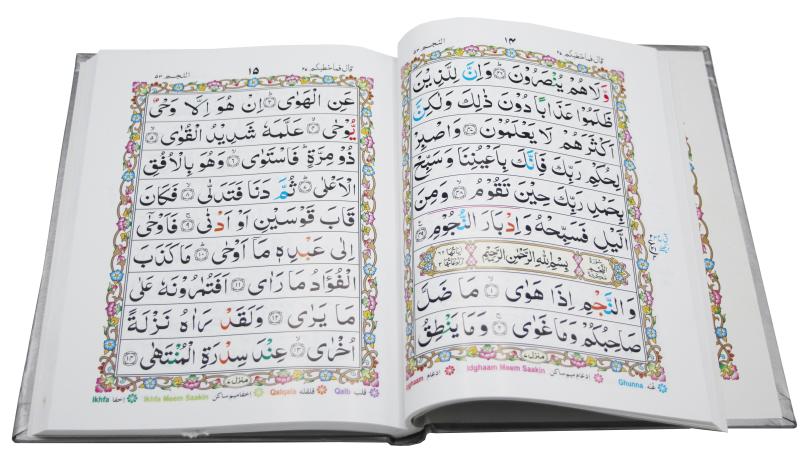 ١٤
وَلَا هُمْ يُنْصَرُوْنَ ۙ وَاِنَّ لِلَّذِيْنَ
ظَلَمُوْا عَذَابًا دُوْنَ ذٰلِكَ وَلٰكِنَّ
اَكْثَرَهُمْ لَا يَعْلَمُوْنَ وَاصْبِرْ
لِحُكْمِ رَبِّكَ فَاِنَّكَ بِاَعْيُنِنَا وَسَبِّحْ
بِحَمْدِ رَبِّكَ حِيْنَ تَقُوْمُ ۙ وَمِنَ
الَّيْلِ فَسَبِّحْهُ وَاِدْبَارَ النُّجُوْمِ
بِسْمِ اللّٰهِ الرَّحْمٰنِ الرَّحِيْمِ
وَالنَّجْمِ اِذَا هَوٰى ۙ مَا ضَلَّ
صَاحِبُكُمْ وَمَا غَوٰى ۚ وَمَا يَنْطِقُ
Ghunna غنه Idghaam Meem Saakin ادغام ميم ساكن ادغام
النجم ٥٣ ١٥
عَنِ الْهَوٰى ؕ اِنْ هُوَ اِلَّا وَحْىٌ
يُّوْحٰى ۙ عَلَّمَهٗ شَدِيْدُ الْقُوٰى ۙ
ذُوْ مِرَّةٍ ؕ فَاسْتَوٰى ۙ وَهُوَ بِالْاُفُقِ
الْاَعْلٰى ؕ ثُمَّ دَنَا فَتَدَلّٰى ۙ فَكَانَ
قَابَ قَوْسَيْنِ اَوْ اَدْنٰى ۚ فَاَوْحٰٓى
اِلٰى عَبْدِهٖ مَاۤ اَوْحٰى ؕ مَا كَذَبَ
الْفُؤَادُ مَا رَاٰى اَفَتُمٰرُوْنَهٗ عَلٰى
مَا يَرٰى وَلَقَدْ رَاٰهُ نَزْلَةً
اُخْرٰى ۙ عِنْدَ سِدْرَةِ الْمُنْتَهٰى
قلب Qalb قلقله Qalqala اخفا ميم ساكن Ikhfa Meem Saakin اخفا Ikhfa